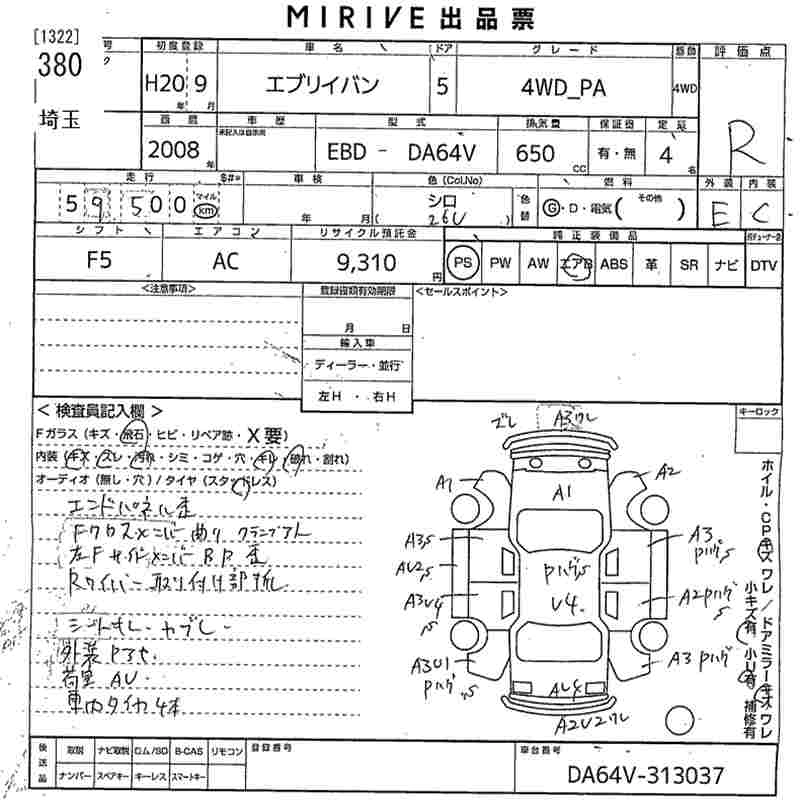 MIRIVE出品票
[1322]
380
埼玉
初度登録 車名 ドア グレード 駆動 評価点
H20 9 エブリイバン 5 4WD_PA 4WD
年 月
R
西暦 車歴 型式 排気量 保証書 定員
未記入は自家用
2008年 EBD - DA64V 650cc 有・無 4名
走行 車検 色(Col.No) 色替 燃料 外装 内装
59500 マイル km 年 月 シロ ( 26U ) G・D・電気( その他 ) E C
シフト エアコン リサイクル預託金 純正装備品
F5 AC 9,310円 PS PW AW エアB ABS 革 SR ナビ DTV
<注意事項> 登録書類有効期限 <セールスポイント>
月 日
輸入車
ディーラー・並行
左H ・ 右H
<検査員記入欄> キーロック
Fガラス(キズ・飛石・ヒビ・リペア跡・X要)
内装(キズ・スレ・汚れ・シミ・コゲ・穴・キレ・破れ・割れ)
オーディオ(無し・穴)/タイヤ(スタッドレス)
エンドパネル歪
Fクロスメンバー曲り
左FサイドメンバーBP歪
Rワイパー取り付け部
シートキレ・ヤブレ
外装
荷室AU
車内タイヤ4本
ズレ A3ワレ
A1 A1 A2
A3S A3 PハゲS
AU2S PハゲS
A3U4S U4 A2PハゲS
A3U1 PハゲS A3Pハゲ
AU4
A2U2ワレ
ホイル・CPキズワレ/ドアミラーキズワレ
小キズ有 小U有 補修有
後送品 取説 ナビ取説 ロム/SD B-CAS リモコン 登録番号 車台番号
ナンバー スペアキー キーレス スマートキー DA64V-313037